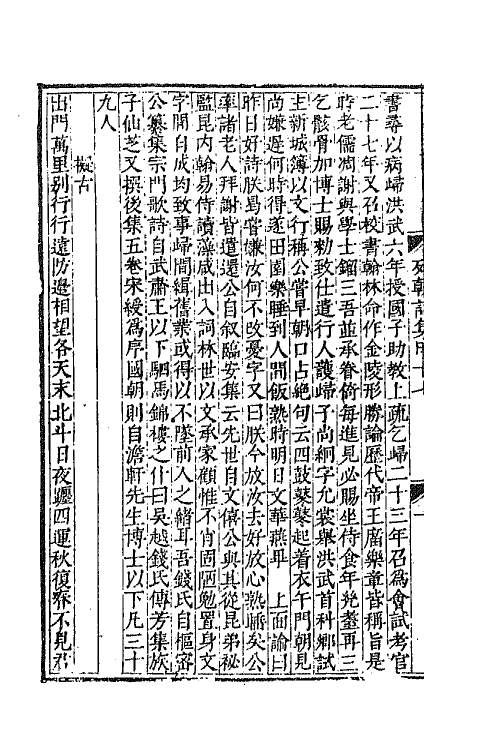 列朝詩集甲十七
書尋以病歸洪武六年授國子助教上䟽乞歸二十三年召為會試考官
二十七年又召校書翰林命作金陵形勝論歷代帝王廟樂章皆稱旨是
時老儒凋謝與學士鎦三吾並承眷倚每進見必賜坐侍食年兊耋再三
乞骸骨加博士賜勑致仕遣行人護歸子尚絅字允裳舉洪武首科鄉試
主新城簿以文行稱公嘗早朝口占絶句云四鼓鼕鼕起着衣午門朝見
尚嫌遲何時得遂田園樂睡到人間飯熟時明日文華燕畢 上面諭曰
昨日好詩朕曷嘗嫌汝何不改憂字又曰朕今放汝去好放心熟睡矣公
率諸老人拜謝皆遣還公自叙臨安集云先世自文僖公與其從昆弟祕
監昆内翰易侍讀藻咸出入詞林世以文承家顧惟不肖固陋勉置身文
字間自成均致事歸間緝舊業或得以不墜前人之緒耳吾錢氏自樞密
公纂集宗門歌詩自武肅王以下駙馬錦樓之什曰吳越錢氏傳芳集族
子仙芝又撰後集五卷宋綬為序國朝則自澹軒先生博士以下凡三十
九人
擬古
出門萬里别行行遠防邊相望各天末北斗日夜躔四運秋復春不見君